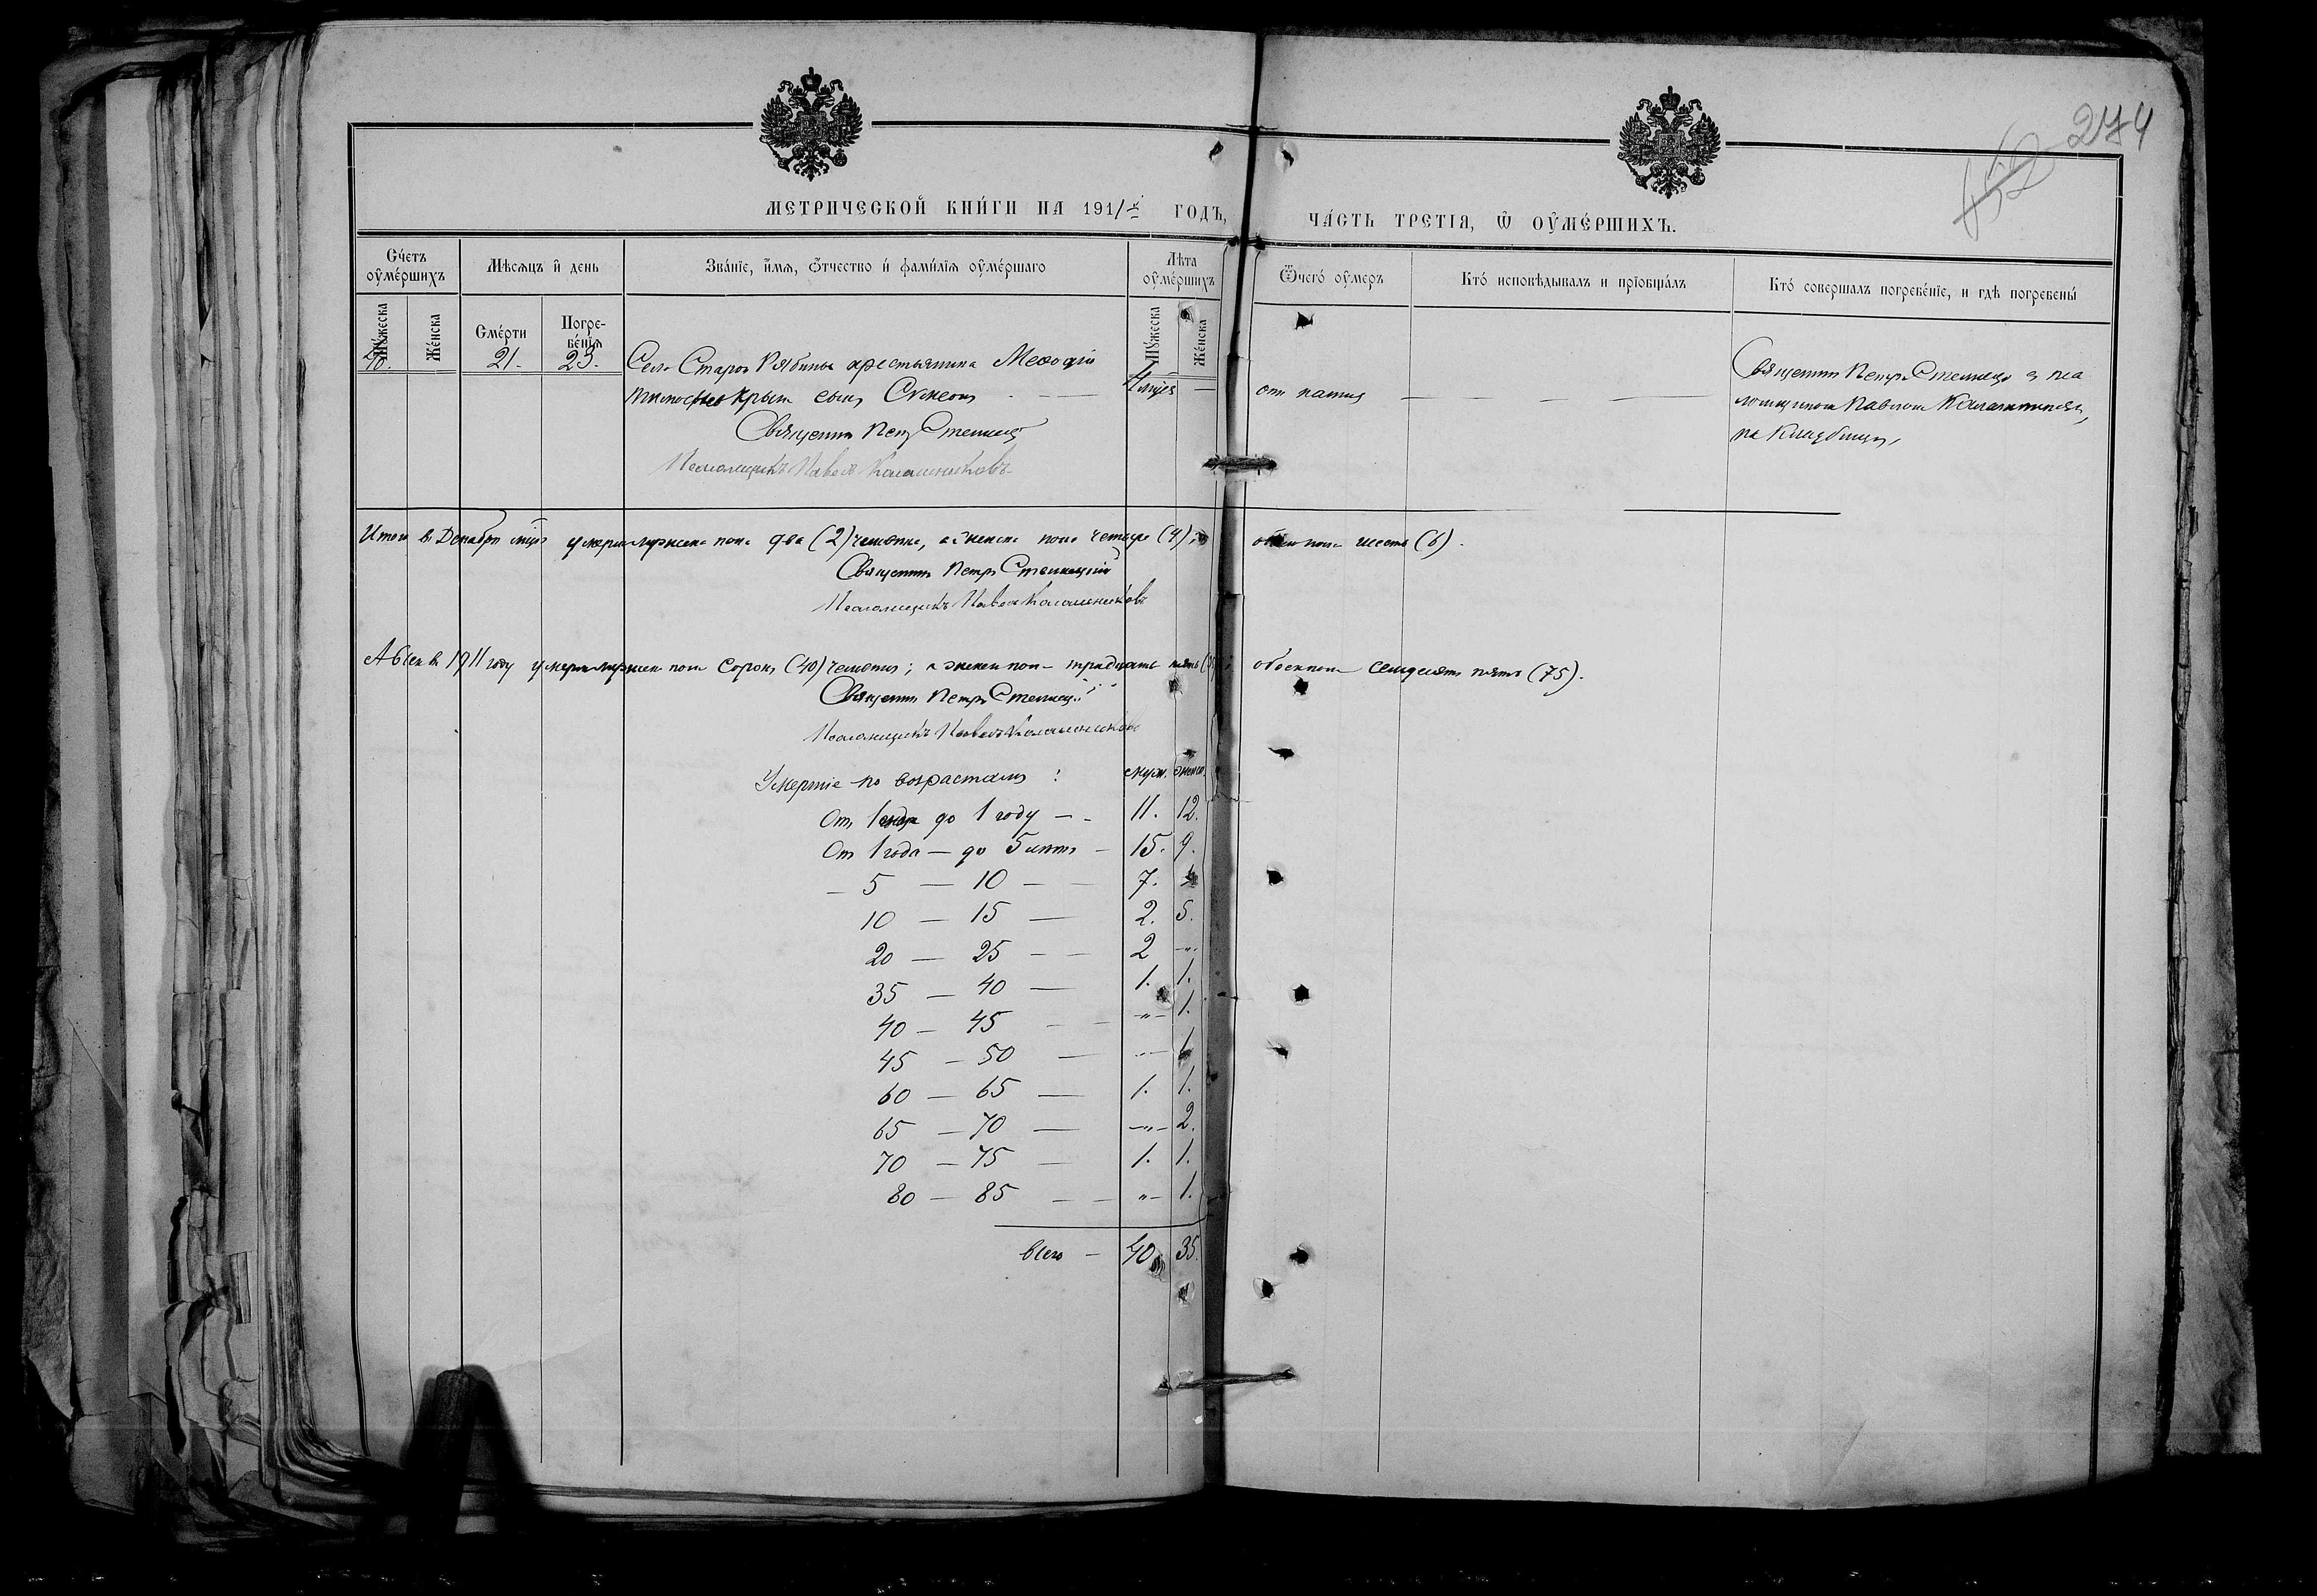 274
МЕТРИЧЕСКОЙ КНИ́ГИ НА 1911 й ГОДЪ,
ЧА́СТЬ ТРЕТІѦ, Ѡ ОУМЕ́РШИХЪ.
Сче́тъ оумершихъ
Мѣсѧцъ и день
Зва́нїе, и́мѧ, ѻ҆́тчество и фами́лїѧ оуме́ршаго
Лѣта оуме́ршихъ
Ѿчегѡ́ оумеръ
Кто́ исповѣдывалъ и прїобща́лъ
Кто́ совершалъ погребе́нїе, и гдѣ погребены́
Мꙋ́жеска
Же́нска
Сме́рти
Погребе́нїѧ
Мꙋ́жеска
Же́нска
40. 21. 23. Села Старой Рябины крестьянина Меѳодія
сынъ Сѵмеонъ 4 мѣся
Священникъ Петръ Стеллецкій
Псаломщикъ Павелъ Калашниковъ
Священникъ Петръ Стеллецкій съ пса
ломщикомъ Павломъ Калашниковымъ,
на кладбищѣ
Итого въ Декабрѣ мѣсяцѣ умерло мужеска пола два (2) человѣка, а женска пола четыре (4);
обоего пола шесть (6).
Священникъ Петръ Стеллецкій
Псаломщикъ Павелъ Калашниковъ
А всего въ 1911 году умерло мужеска пола сорокъ (40) человѣкъ; а женска пола тридцать пять (35);
обоего пола семьдесятъ пять (75).
Священникъ Петръ Стеллецкій
Псаломщикъ Павелъ Калашниковъ
Умершіе по возрастамъ: муж. женск.
Отъ 1 до 1 году — 11. 12.
Отъ 1 года — до 5 лѣтъ — 15. 9.
— 5 — 10 — 7.
10 — 15 — 2. 5.
20 — 25 — 2 -"-
35 — 40 — 1. 1.
40 — 45 — -"- 1.
45 — 50 — -"- 1
60 — 65 — 1. 1.
65 — 70 — -"- 2.
70 — 75 — 1. 1.
80 — 85 — -"- 1.
Всего — 40 35.